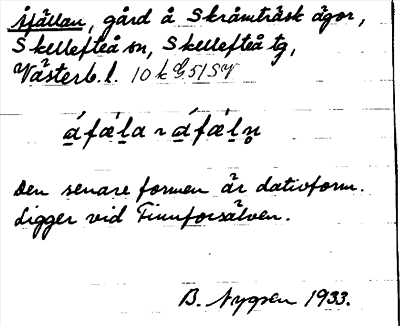 Åfjällan, gård å Skråmträsk ägor,
Skellefteå sn, Skellefteå tg,
Västerb. l. 10 k G 51 SV
á̲fǽl̲a ~ á̲fǽl̲n̥
Den senare formen är dativform.
Ligger vid Finnforsälven.
B. Nygren 1933.